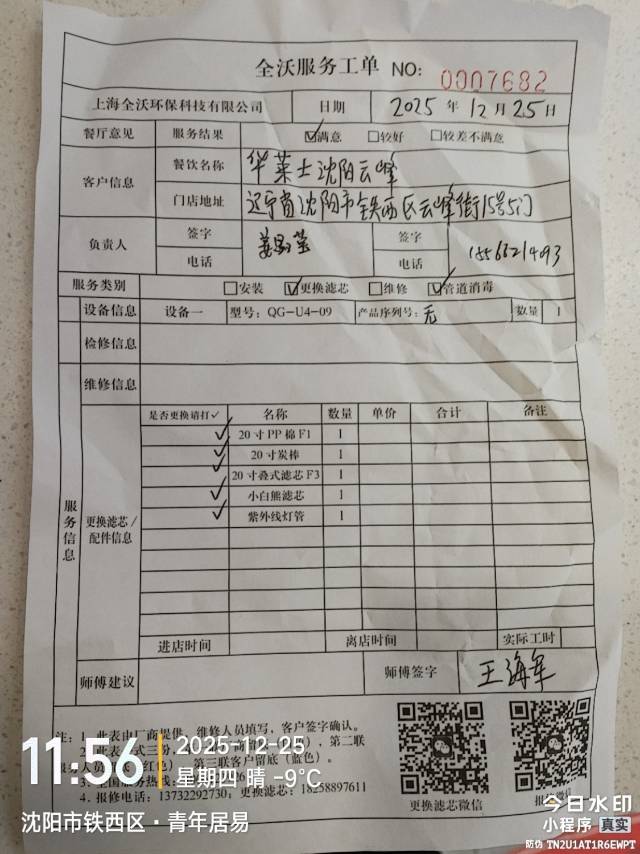 全沃服务工单 NO: 0007682
上海全沃环保科技有限公司 日期 2025年12月25日
餐厅意见 服务结果 ☑满意 □较好 □较差不满意
客户信息 餐饮名称 华莱士沈阳云峰
门店地址 辽宁省沈阳市铁西区云峰街15号5门
负责人 签字 签字
电话 电话
服务类别 □安装 ☑更换滤芯 □维修 ☑管道消毒
设备信息 设备一 型号: QG-U4-09 产品序列号: 无 数量 1
检修信息
维修信息
服务信息
更换滤芯/配件信息
是否更换请打✓ 名称 数量 单价 合计 备注
✓ 20寸PP棉F1 1
✓ 20寸炭棒 1
✓ 20寸叠式滤芯F3 1
✓ 小白熊滤芯 1
✓ 紫外线灯管 1
进店时间 离店时间 实际工时
师傅建议 师傅签字 王海军
注: 1. 此表由厂商提供, 维修人员填写, 客户签字确认。
第二联
第三联客户留底(蓝色)。
4. 报修电话: 13732292730; 更换滤芯: 18258897611
更换滤芯微信
11:56 2025-12-25
星期四 晴 -9℃
沈阳市铁西区·青年居易
今日水印
小程序 真实
防伪 TN2U1AT1R6EWPT